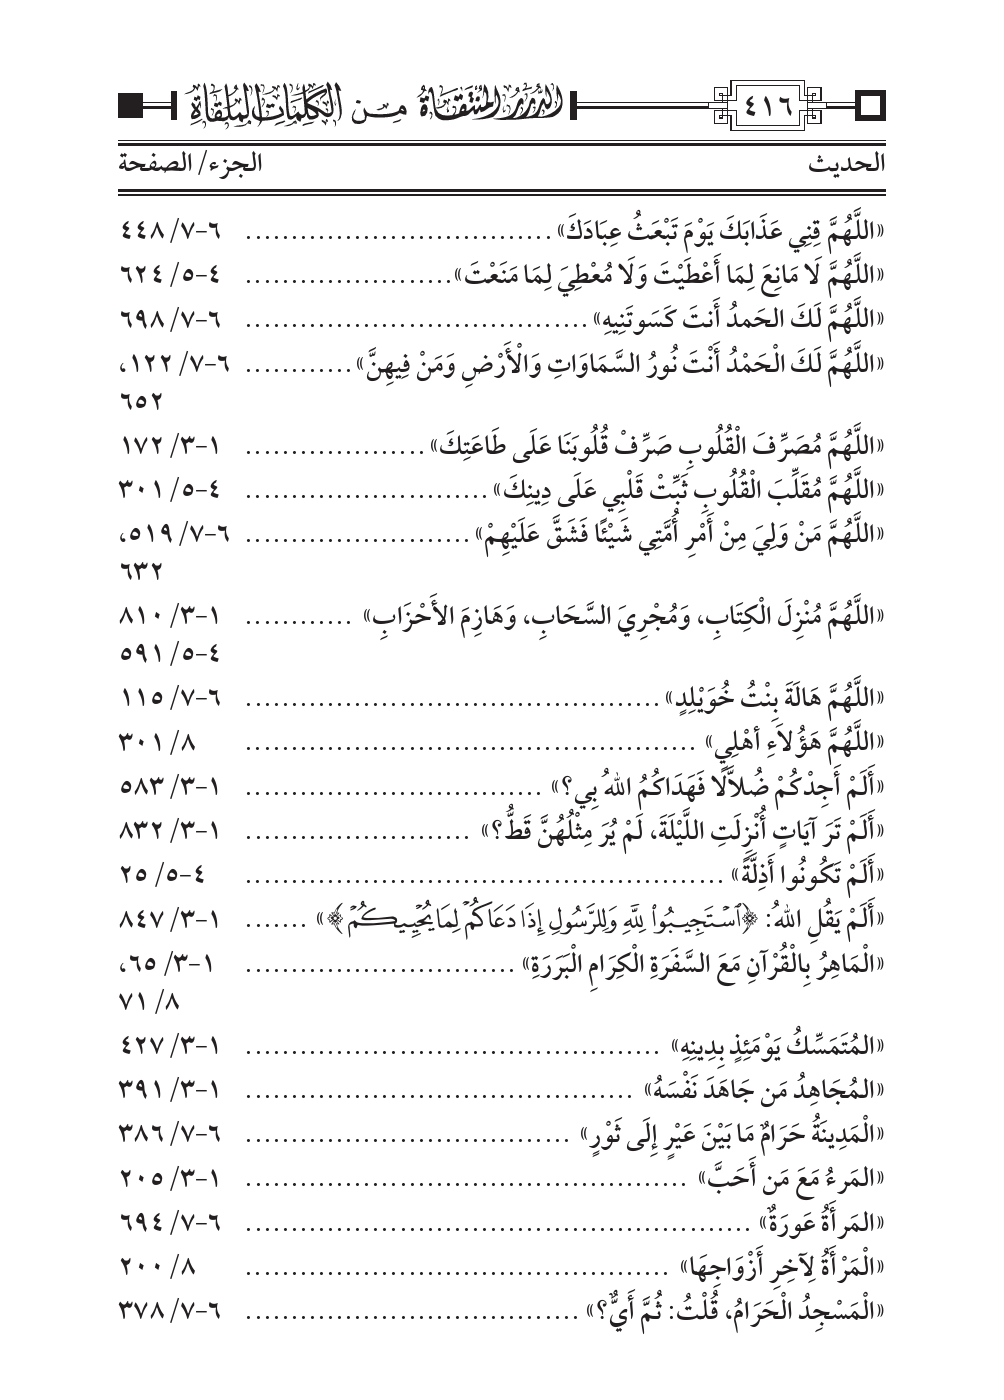 ٤١٦ الدرر المنتقاة من الكلمات الملقاة
الحديث الجزء/ الصفحة
«اللَّهُمَّ قِنِي عَذَابَكَ يَوْمَ تَبْعَثُ عِبَادَكَ» .................................. ٦-٧/ ٤٤٨
«اللَّهُمَّ لَا مَانِعَ لِمَا أَعْطَيْتَ وَلَا مُعْطِيَ لِمَا مَنَعْتَ» ....................... ٤-٥/ ٦٢٤
«اللَّهُمَّ لَكَ الحَمدُ أَنتَ كَسَوتَنِيهِ» ...................................... ٦-٧/ ٦٩٨
«اللَّهُمَّ لَكَ الْحَمْدُ أَنْتَ نُورُ السَّمَاوَاتِ وَالْأَرْضِ وَمَنْ فِيهِنَّ» ............ ٦-٧/ ١٢٢،
٦٥٢
«اللَّهُمَّ مُصَرِّفَ الْقُلُوبِ صَرِّفْ قُلُوبَنَا عَلَى طَاعَتِكَ» .................... ١-٣/ ١٧٢
«اللَّهُمَّ مُقَلِّبَ الْقُلُوبِ ثَبِّتْ قَلْبِي عَلَى دِينِكَ» ........................... ٤-٥/ ٣٠١
«اللَّهُمَّ مَنْ وَلِيَ مِنْ أَمْرِ أُمَّتِي شَيْئًا فَشَقَّ عَلَيْهِمْ» ......................... ٦-٧/ ٥١٩،
٦٣٢
«اللَّهُمَّ مُنْزِلَ الْكِتَابِ، وَمُجْرِيَ السَّحَابِ، وَهَازِمَ الأَحْزَابِ» ............ ١-٣/ ٨١٠
٤-٥/ ٥٩١
«اللَّهُمَّ هَالَةَ بِنْتُ خُوَيْلِدٍ» .............................................. ٦-٧/ ١١٥
«اللَّهُمَّ هَؤُلاَءِ أهْلِي» .................................................. ٨/ ٣٠١
«أَلَمْ أَجِدْكُمْ ضُلاَّلًا فَهَدَاكُمُ اللهُ بِي؟» ................................. ١-٣/ ٥٨٣
«أَلَمْ تَرَ آيَاتٍ أُنْزِلَتِ اللَّيْلَةَ، لَمْ يُرَ مِثْلُهُنَّ قَطُّ؟» ......................... ١-٣/ ٨٣٢
«أَلَمْ تَكُونُوا أَذِلَّةً» ..................................................... ٤-٥/ ٢٥
«أَلَمْ يَقُلِ اللهُ: ﴿ٱسۡتَجِيبُواْ لِلَّهِ وَلِلرَّسُولِ إِذَا دَعَاكُمۡ لِمَا يُحۡيِيكُمۡ﴾» ....... ١-٣/ ٨٤٧
«الْمَاهِرُ بِالْقُرْآنِ مَعَ السَّفَرَةِ الْكِرَامِ الْبَرَرَةِ» .............................. ١-٣/ ٦٥،
٨/ ٧١
«المُتَمَسِّكُ يَوْمَئِذٍ بِدِينِهِ» .............................................. ١-٣/ ٤٢٧
«المُجَاهِدُ مَن جَاهَدَ نَفْسَهُ» ........................................... ١-٣/ ٣٩١
«الْمَدِينَةُ حَرَامٌ مَا بَيْنَ عَيْرٍ إِلَى ثَوْرٍ» .................................... ٦-٧/ ٣٨٦
«المَرءُ مَعَ مَن أَحَبَّ» ................................................. ١-٣/ ٢٠٥
«المَرأَةُ عَورَةٌ» ........................................................ ٦-٧/ ٦٩٤
«الْمَرْأَةُ لِآخِرِ أَزْوَاجِهَا» ............................................... ٨/ ٢٠٠
«الْمَسْجِدُ الْحَرَامُ، قُلْتُ: ثُمَّ أَيٌّ؟» ..................................... ٦-٧/ ٣٧٨